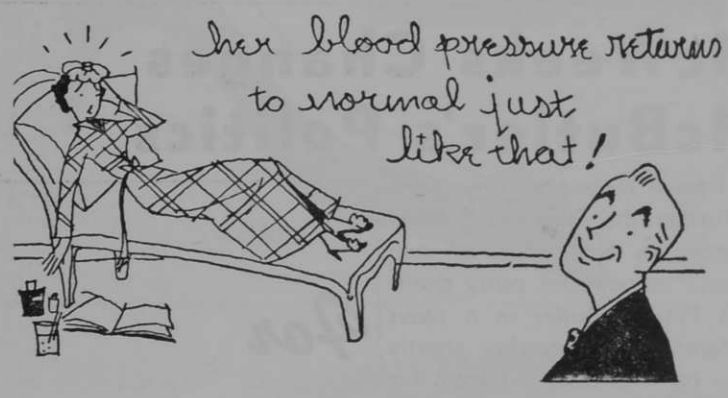 her blood pressure returns
to normal just
like that!